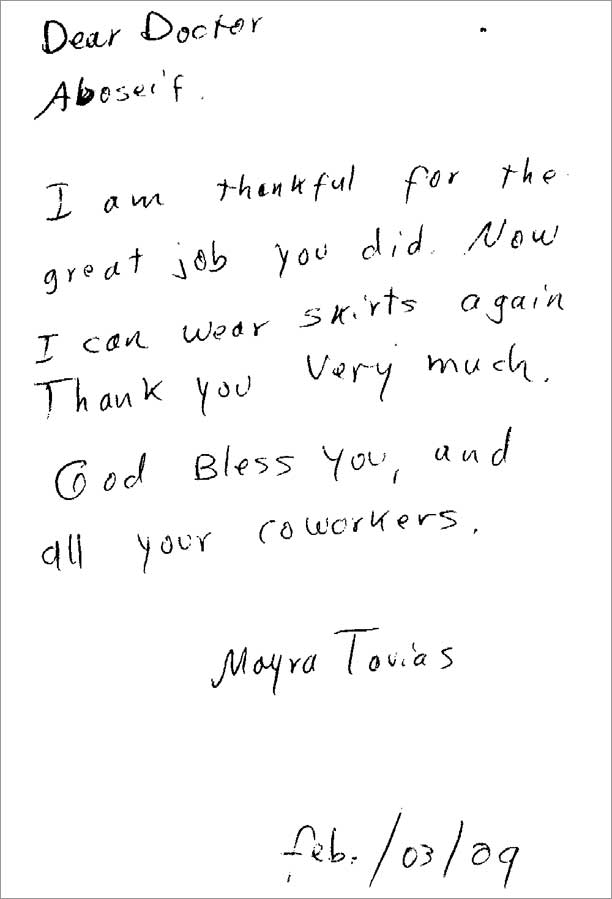 Dear Doctor
Aboseif.
I am thankful for the
great job you did. Now
I can wear skirts again
Thank you Very much.
God Bless You, and
all your coworkers.
Mayra Tovias
feb. /03/09